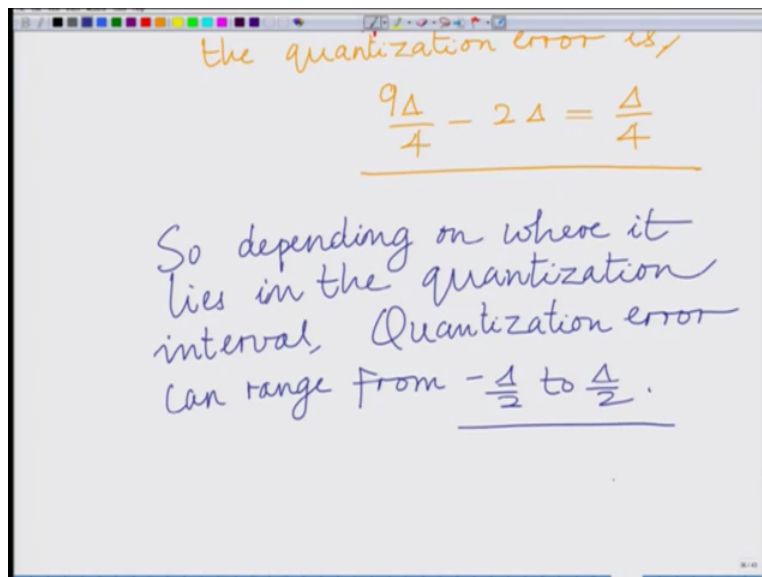 the quantization error is,
9Δ/4 - 2Δ = Δ/4
So depending on where it
lies in the quantization
interval, Quantization error
can range from -Δ/2 to Δ/2.